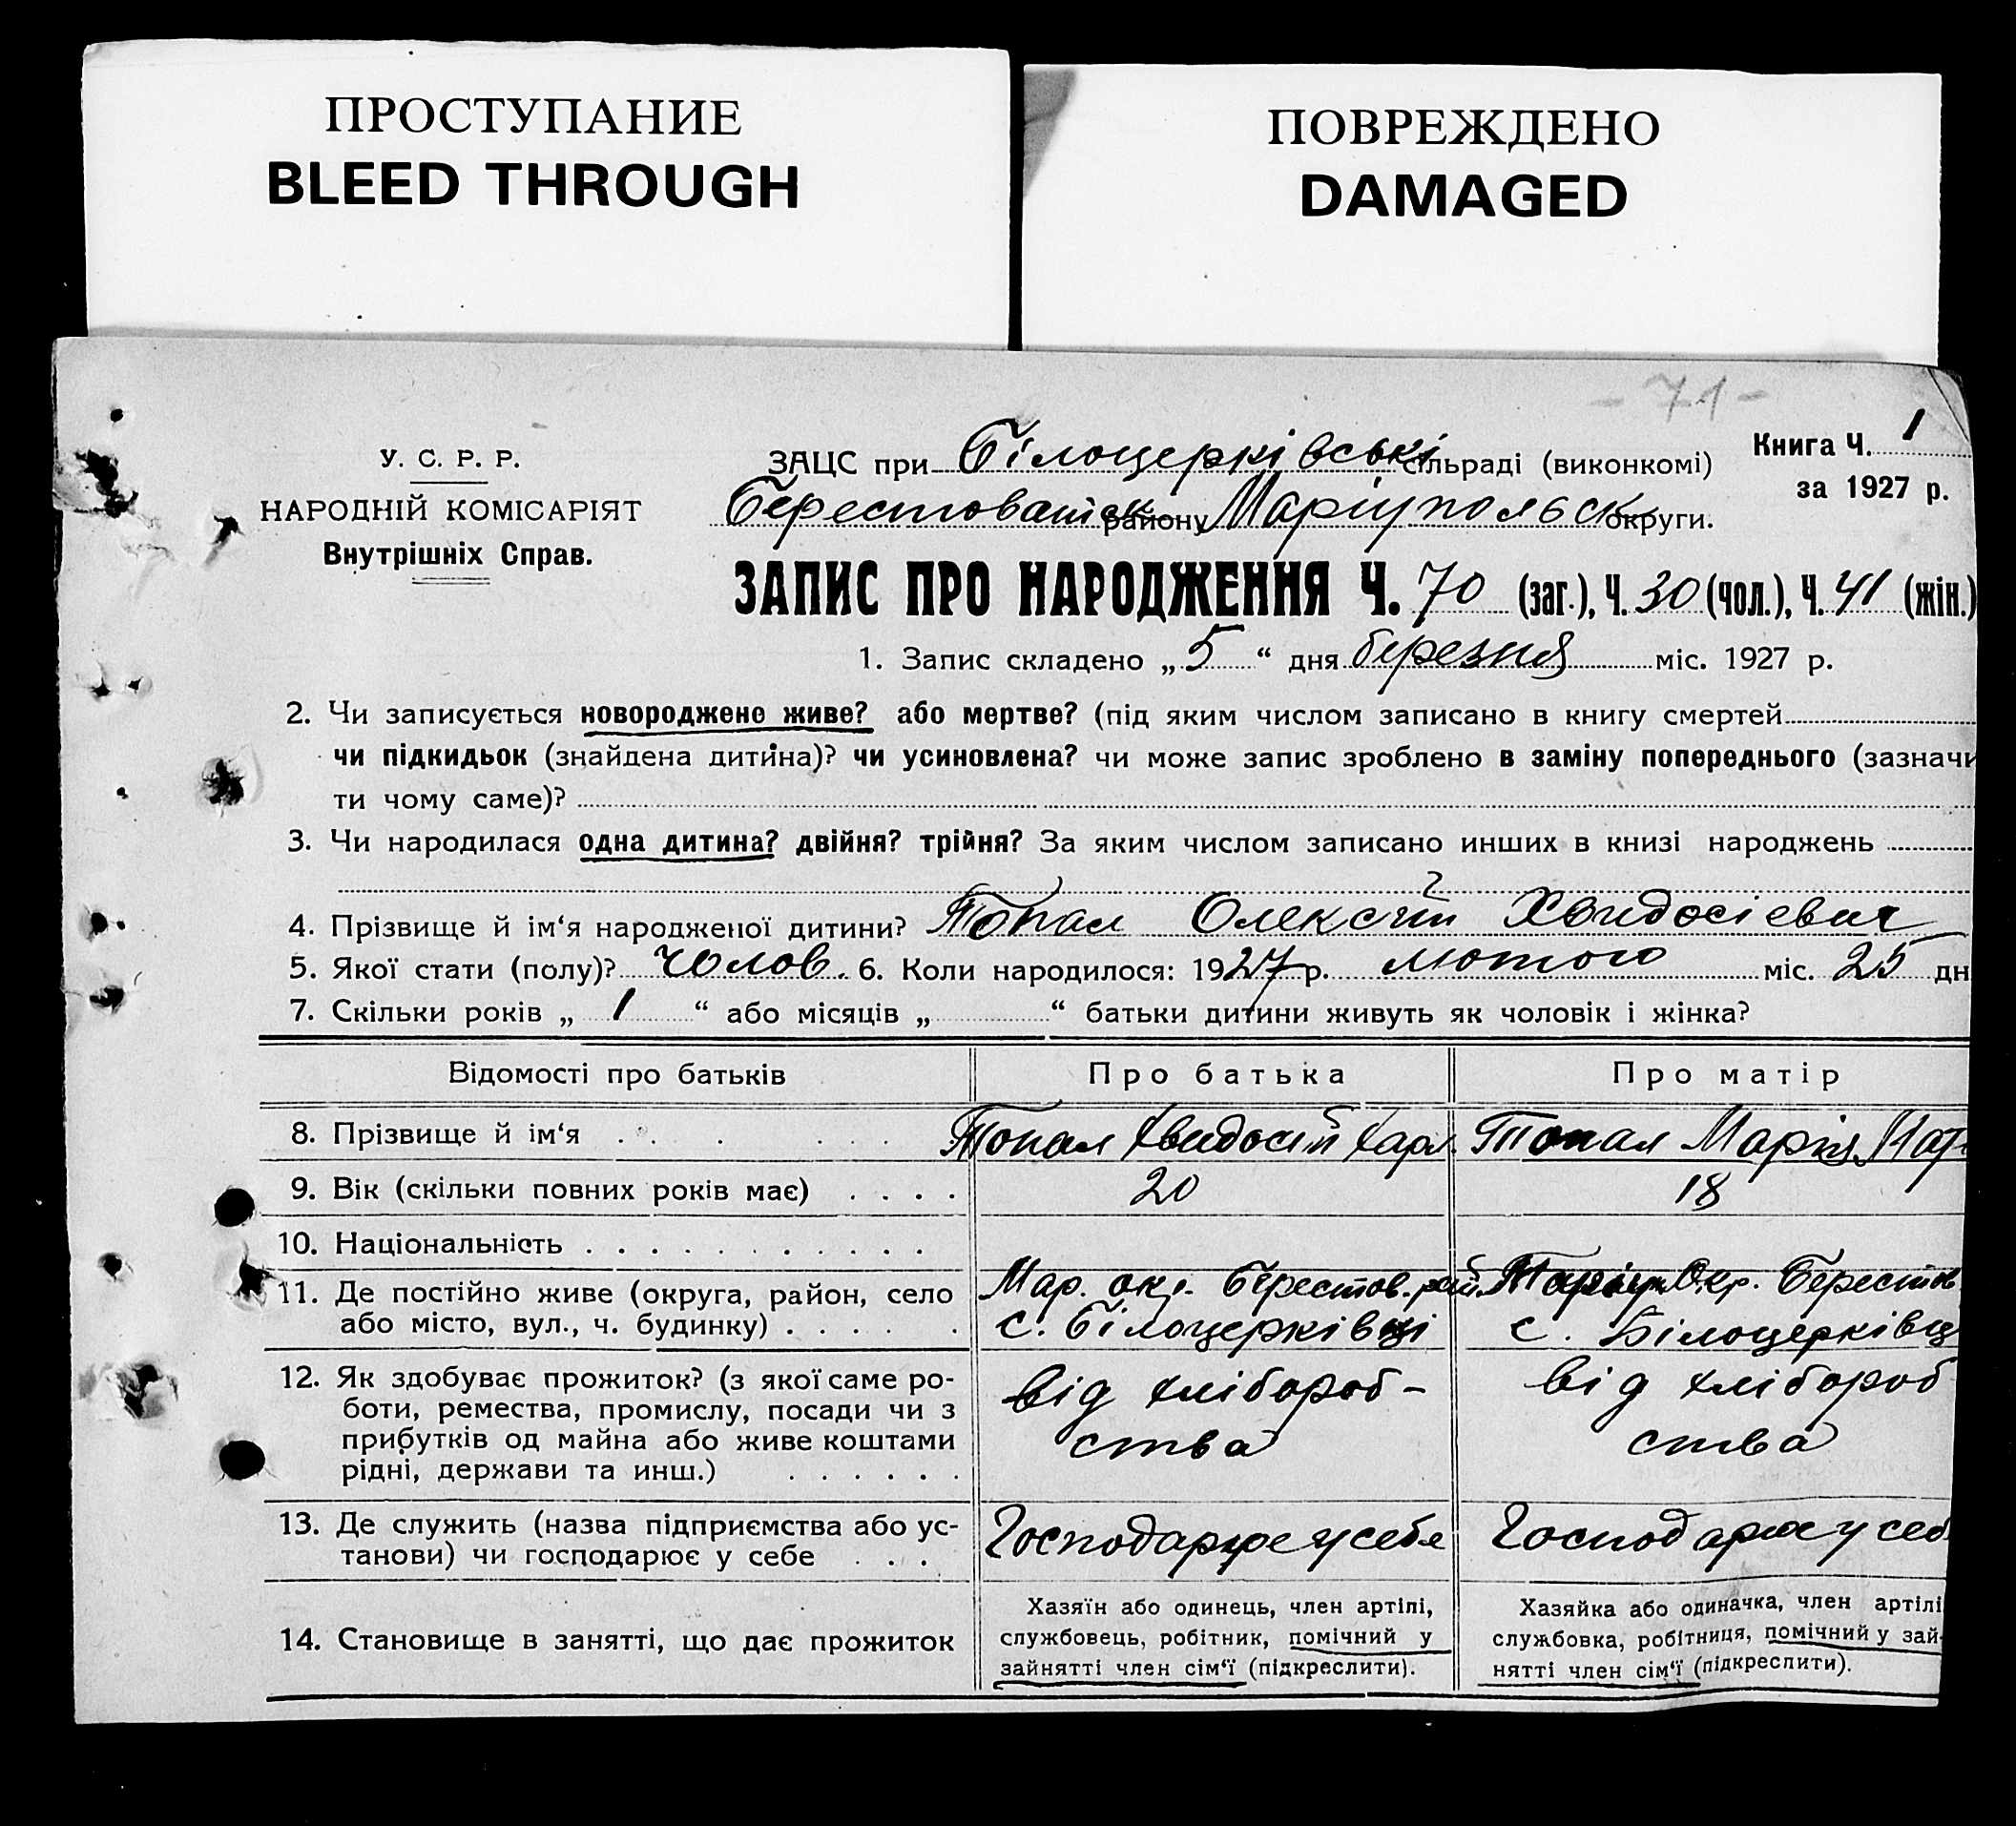 ПРОСТУПАНИЕ
BLEED THROUGH
ПОВРЕЖДЕНО
DAMAGED
- 71 -
У. С. Р. Р.
НАРОДНІЙ КОМІСАРІЯТ
Внутрішніх Справ.
ЗАЦС при Білоцерківські сільраді (виконкомі)
Книга Ч. 1
за 1927 р.
району Маріупольськ округи.
ЗАПИС ПРО НАРОДЖЕННЯ Ч. 70 (заг.), Ч. 30 (чол.), Ч. 41 (жін.)
1. Запис складено „ 5 “ дня березня міс. 1927 р.
2. Чи записується новороджене живе? або мертве? (під яким числом записано в книгу смертей
чи підкидьок (знайдена дитина)? чи усиновлена? чи може запис зроблено в заміну попереднього (зазначи
ти чому саме)?
3. Чи народилася одна дитина? двійня? трійня? За яким числом записано инших в книзі народжень
4. Прізвище й ім‘я народженої дитини? Топал Олексій Хвидосієвич
5. Якої стати (полу)? чолов. 6. Коли народилося: 1927 р. лютого міс. 25 дн
7. Скільки років „ 1 “ або місяців „ “ батьки дитини живуть як чоловік і жінка?
Відомості про батьків Про батька Про матір
8. Прізвище й ім‘я Топал Хвидосій Харл. Топал Марія
9. Вік (скільки повних років має) 20 18
10. Національність
11. Де постійно живе (округа, район, село
або місто, вул., ч. будинку)
Мар. окр. Берестов. рай.
с. Білоцерківці
Маріуп. Окр. Берестов
с. Білоцерківц
12. Як здобуває прожиток? (з якої саме ро-
боти, ремества, промислу, посади чи з
прибутків од майна або живе коштами
рідні, держави та инш.)
від хлібороб-
ства
від хлібороб
ства
13. Де служить (назва підприємства або ус-
танови) чи господарює у себе
Господарює у себе
Господарює у себ
14. Становище в занятті, що дає прожиток
Хазяїн або одинець, член артілі,
службовець, робітник, помічний у
зайнятті член сім‘ї (підкреслити).
Хазяйка або одиначка, член артілі
службовка, робітниця, помічний у зай-
нятті член сім‘ї (підкреслити).